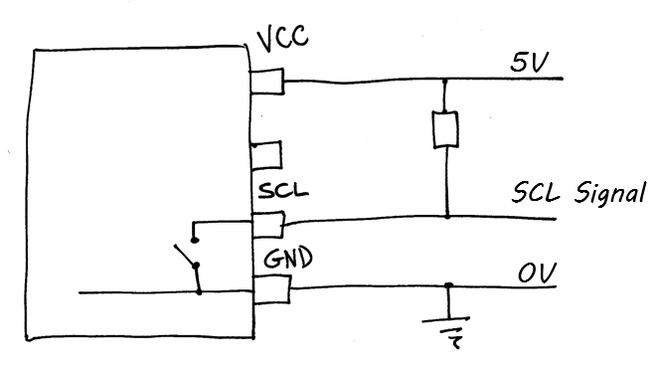 VCC
5V
SCL
SCL Signal
GND
0V